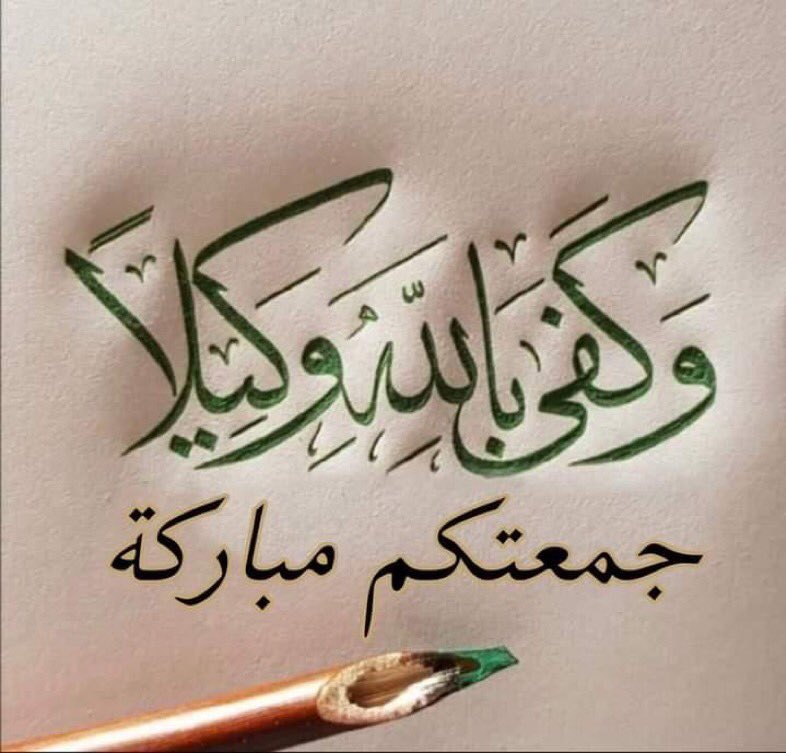 وَكَفَى بِاللَّهِ وَكِيلًا
جمعتكم مباركة